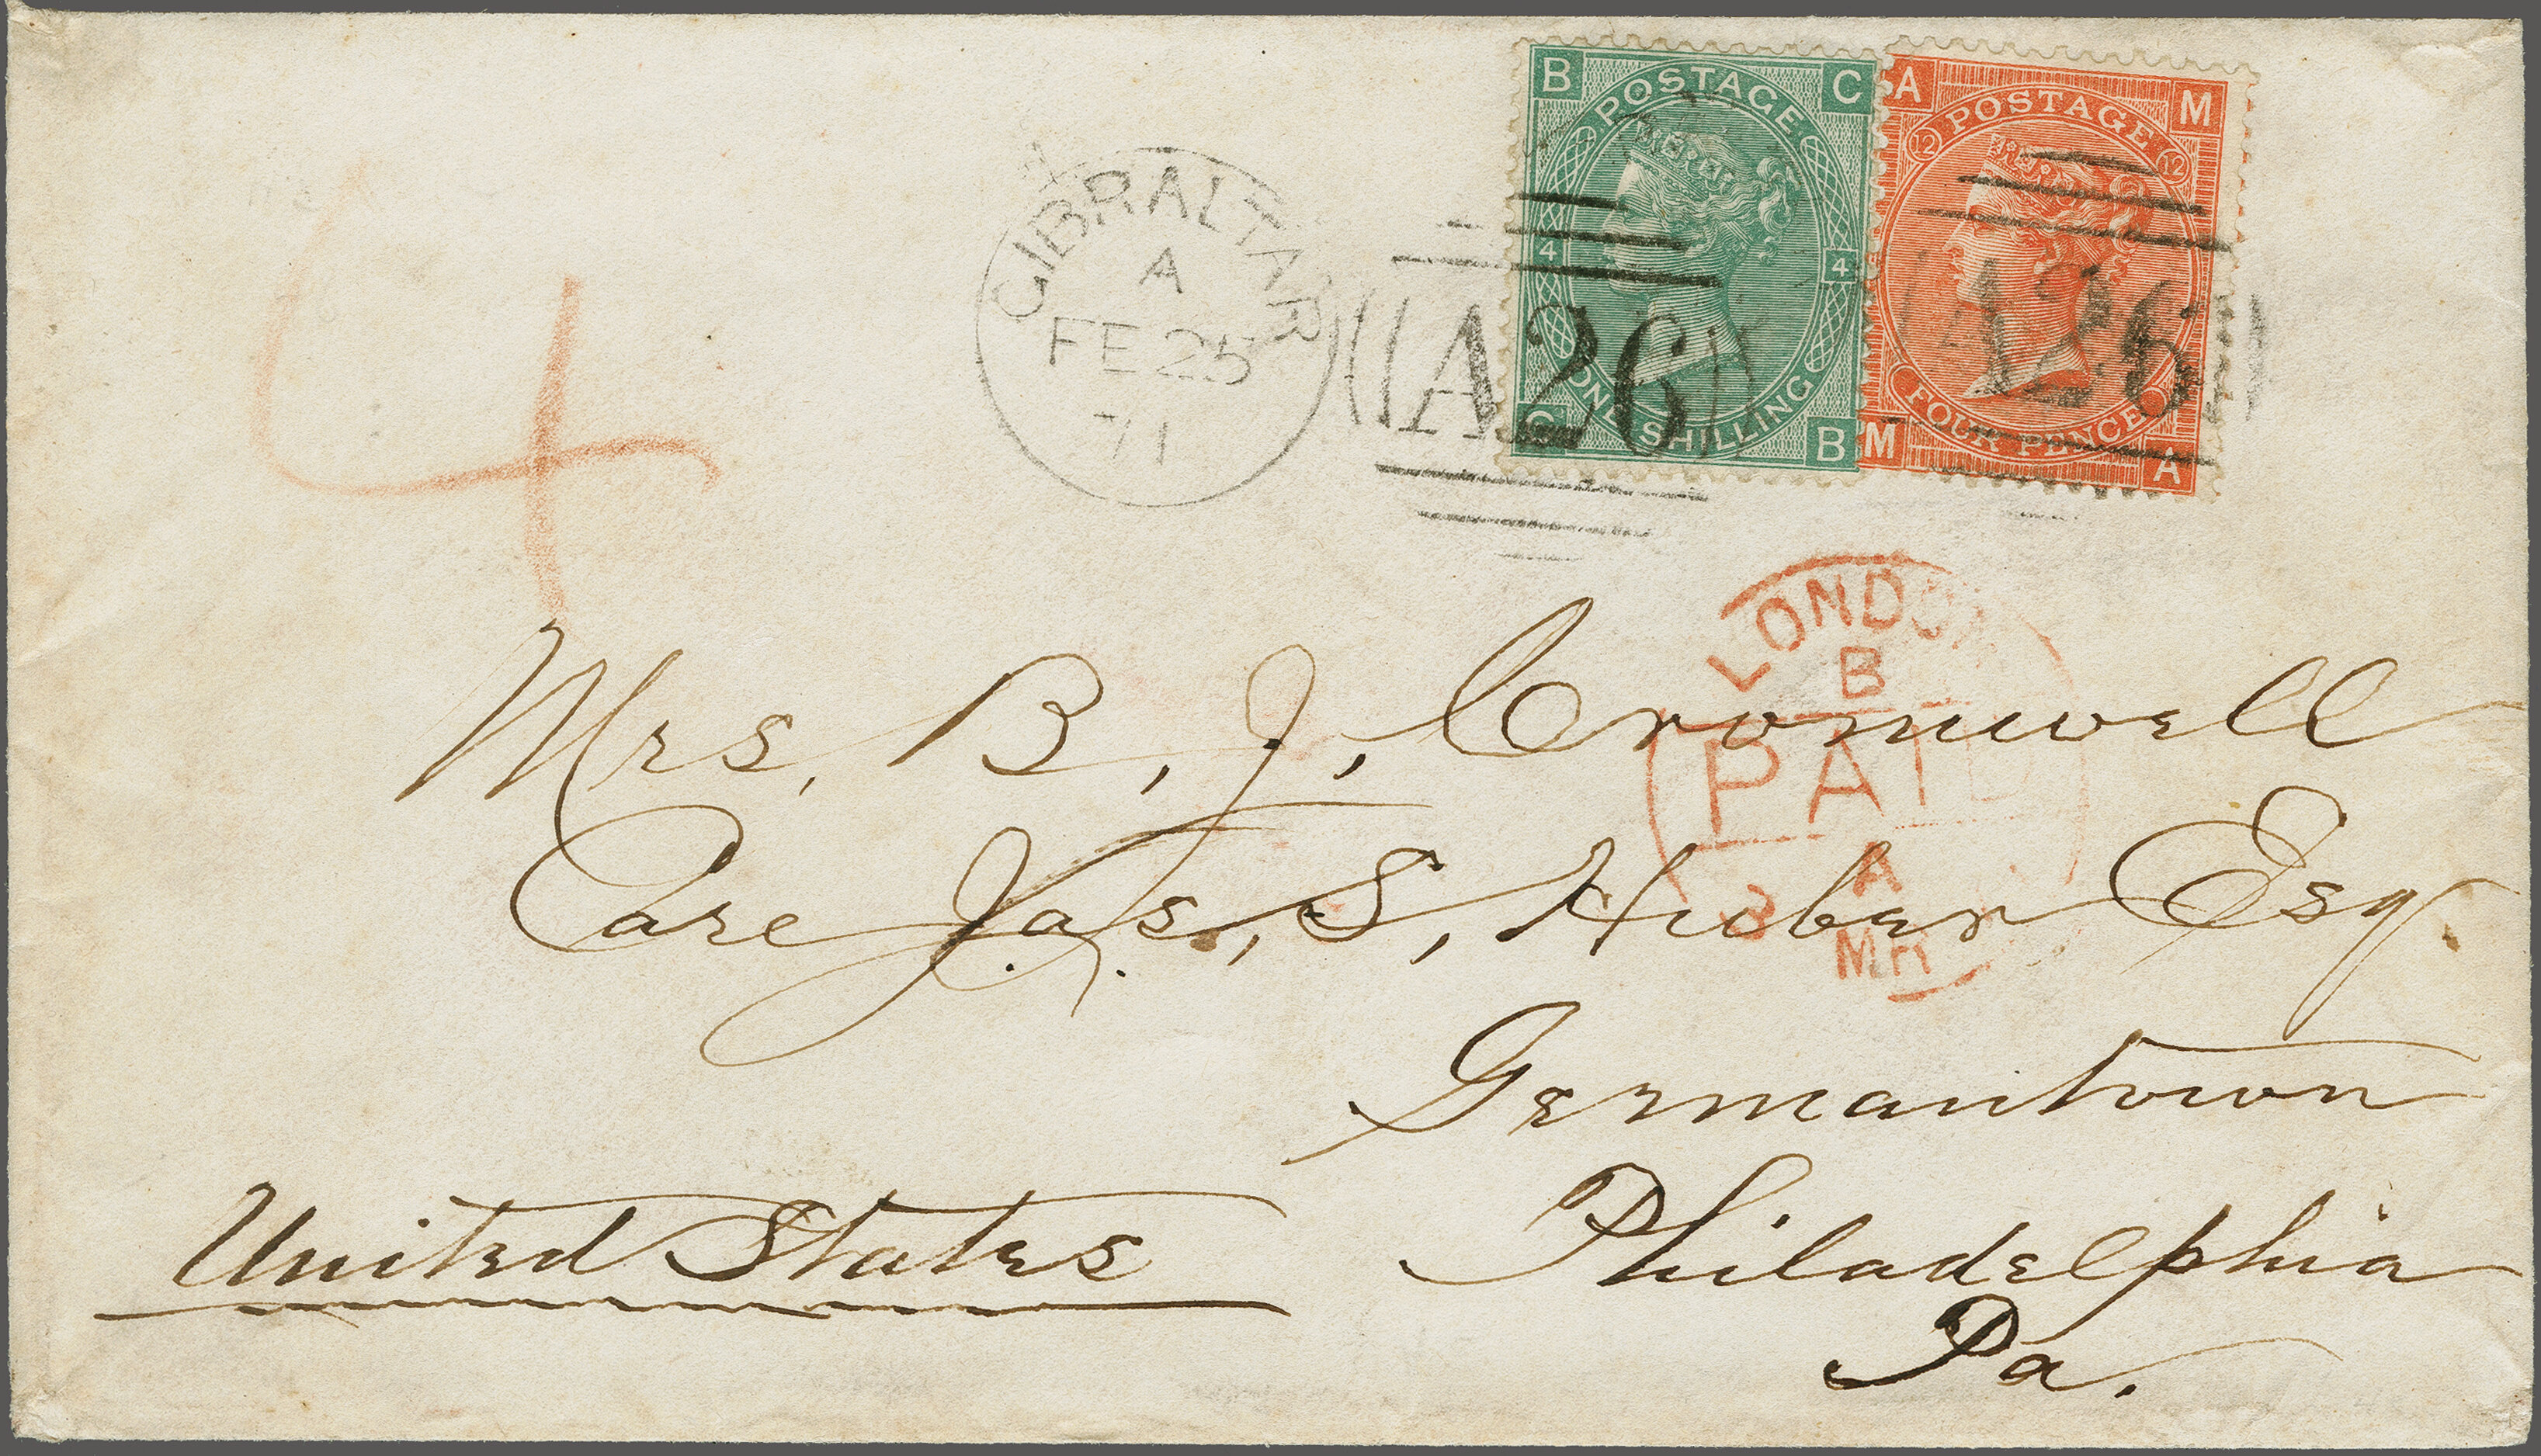 B POSTAGE C
4 4
ONE SHILLING
C B
A POSTAGE M
12 12
FOUR PENCE
M A
GIBRALTAR
A
FE 25
71
A26
A26
4
LONDON
B
PAID
A
3
MR
Mrs. B. J. Cromwell
Care Jas. S. Huber Esq.
Germantown
Philadelphia
Pa.
United States